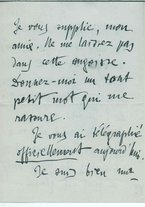 Je vous supplie, mon
amie. Ne me laissez pas
dans cette angoisse.
Donnez-moi un tout
petit mot qui me
rassure.
Je vous ai télégraphié
officiellement aujourd'hui
Je suis bien ma